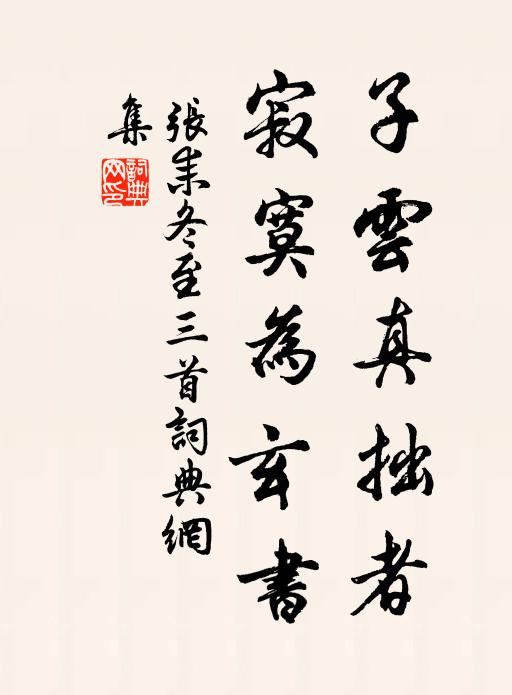 子雲真拙者
寂寞為玄書
張耒冬至三首詞典網
集
詞典網印